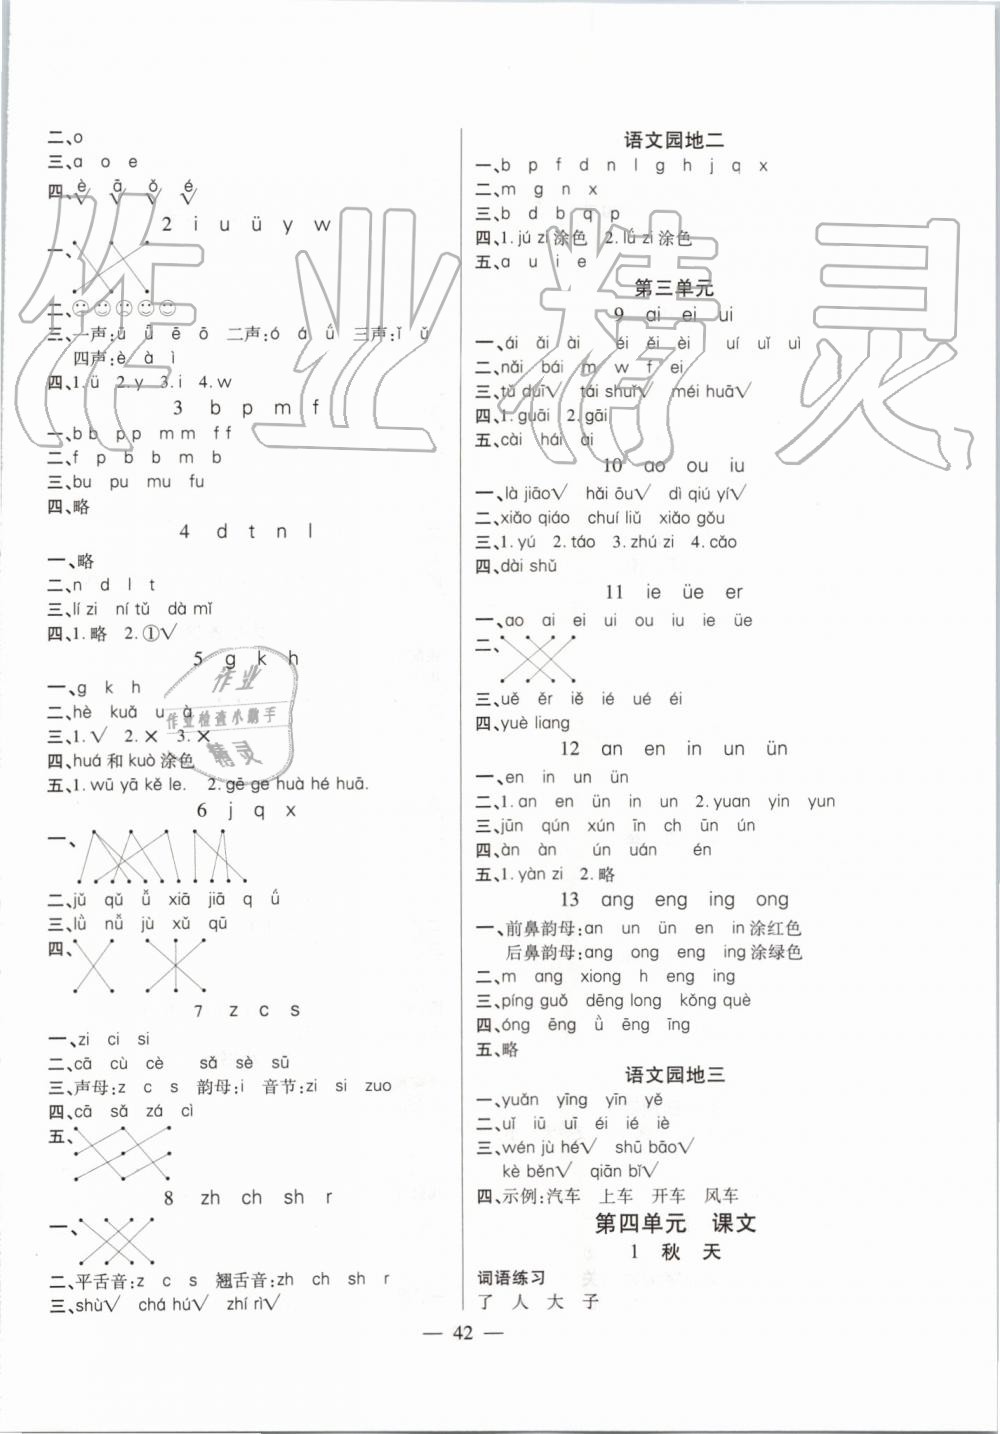 二、o
三、a o e
四、è√ ā√ ǒ√ é√
2 i u ü y w
一、
二、
三、一声:ū ǖ ē ō 二声:ó á ǘ 三声:ǐ ǔ
四声:è à ì
四、1. ü 2. y 3. i 4. w
3 b p m f
一、b b p p m m f f
二、f p b b m b
三、bu pu mu fu
四、略
4 d t n l
一、略
二、n d l t
三、lí zi ní tǔ dà mǐ
四、1. 略 2. ①√
5 g k h
一、g k h
二、hè kuǎ u à
三、1. √ 2. × 3. ×
四、huá 和 kuò 涂色
五、1. wū yā kě le. 2. gē ge huà hé huā.
6 j q x
一、
二、jǔ qǔ ǚ xiā jiā q ǘ
三、lǜ nǚ jù xǔ qū
四、
7 z c s
一、zi ci si
二、cā cù cè sǎ sè sū
三、声母:z c s 韵母:i 音节:zi si zuo
四、cā sǎ zá cì
五、
8 zh ch sh r
一、
二、平舌音:z c s 翘舌音:zh ch sh r
三、shù√ chá hú√ zhí rì√
语文园地二
一、b p f d n l g h j q x
二、m g n x
三、b d b q p
四、1. jú zi 涂色 2. lǘ zi 涂色
五、a u i e
第三单元
9 ai ei ui
一、ái ǎi ài éi ěi èi uí uǐ uì
二、nǎi bái m w f ei
三、tǔ duī√ tái shuǐ√ méi huā√
四、1. guāi 2. gāi
五、cài hái ai
10 ao ou iu
一、là jiāo√ hǎi ōu√ dì qiú yí√
二、xiǎo qiáo chuí liǔ xiǎo gǒu
三、1. yú 2. táo 3. zhú zi 4. cǎo
四、dài shǔ
11 ie üe er
一、ao ai ei ui ou iu ie üe
二、
三、uě ěr iě ié ué éi
四、yuè liang
12 an en in un ün
一、en in un ün
二、1. an en ün in un 2. yuan yin yun
三、jūn qún xún īn ch ūn ún
四、àn àn ún uán én
五、1. yàn zi 2. 略
13 ang eng ing ong
一、前鼻韵母:an un ün en in 涂红色
后鼻韵母:ang ong eng ing 涂绿色
二、m ang xiong h eng ing
三、píng guǒ dēng long kǒng què
四、óng ēng ǜ ēng īng
五、略
语文园地三
一、yuǎn yīng yīn yě
二、uǐ iū uī éi ié iè
三、wén jù hé√ shū bāo√
kè běn√ qiān bǐ√
四、示例:汽车 上车 开车 风车
第四单元 课文
1 秋 天
词语练习
了 人 大 子
— 42 —
作业精灵
作业
作业检查小助手
精灵